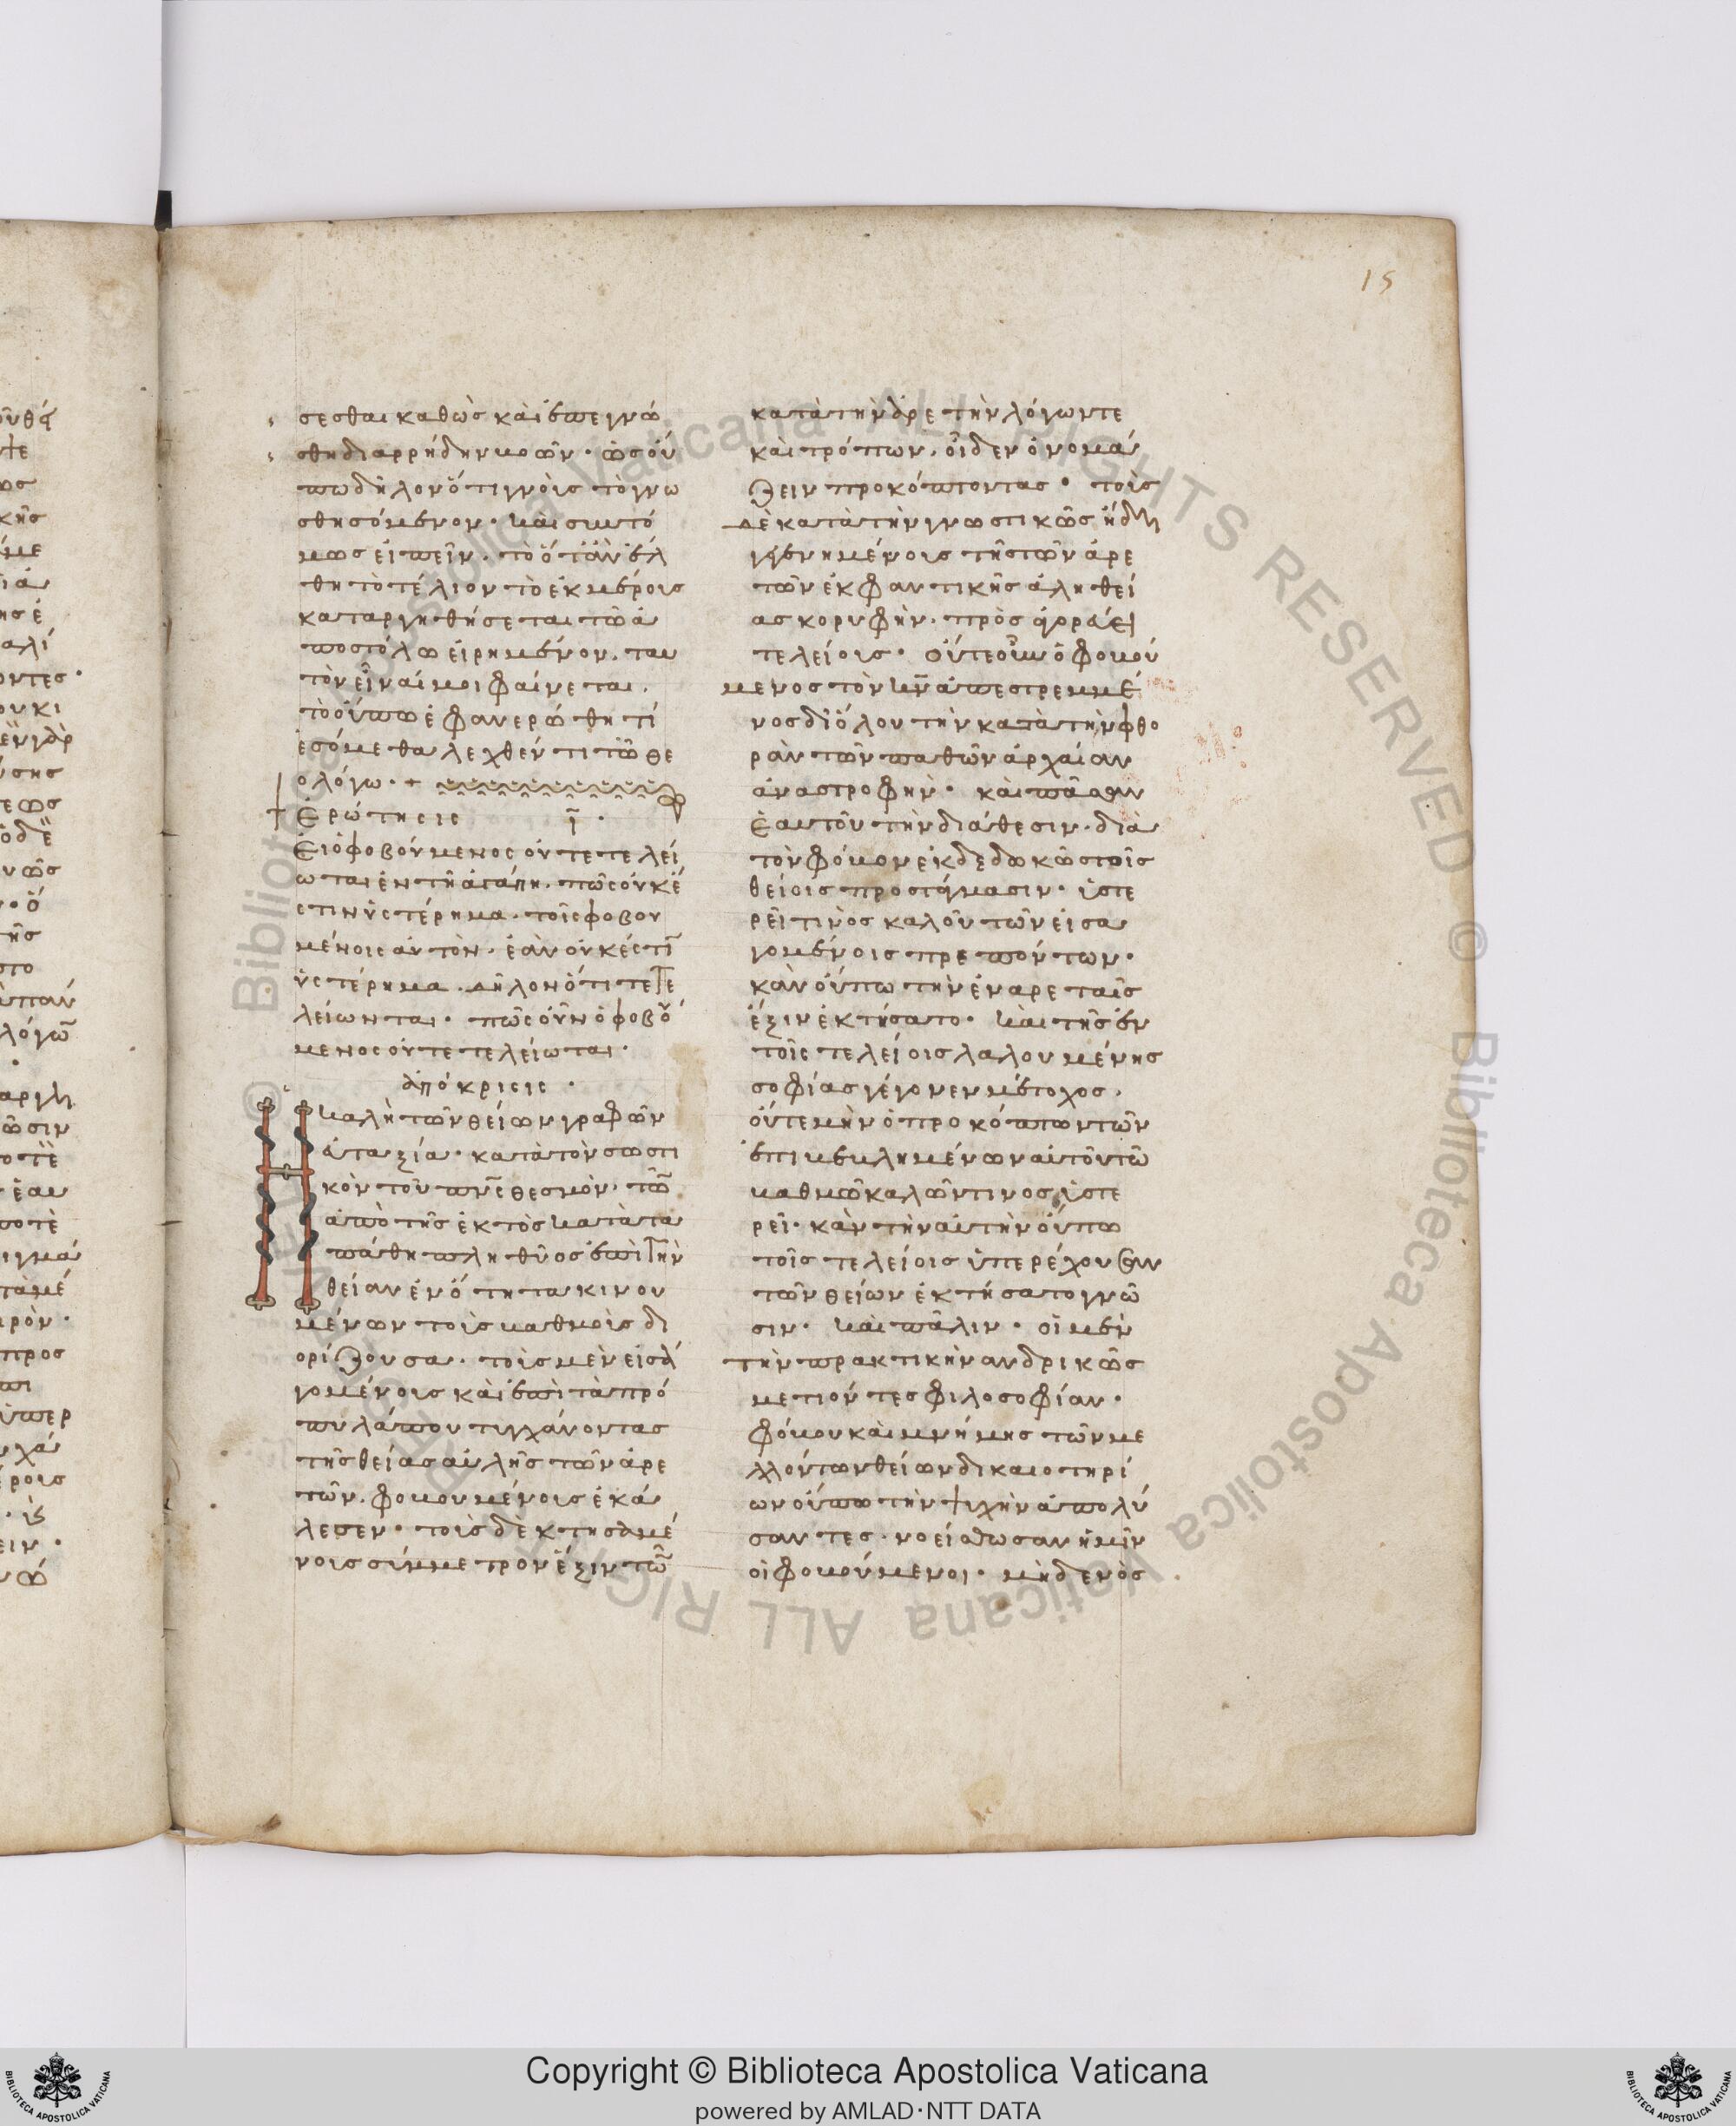 15
σεσθαι καθὼς καὶ ἐπεγνώ
σθη διαρρήδην βοῶν· ὡς οὐ
πω δῆλον ὅτι γνοὺς τὸ γνω
σθησόμενον· καὶ συντό
μως εἰπεῖν· τὸ ὅταν ἔλ
θη τὸ τέλιον τὸ ἐκ μέρους
καταργηθήσεται τῶ ἀ
ποστόλω εἰρημένον· ταυ
τὸν εἶναί μοι φαίνεται·
τὸ οὔπω ἐφανερώθη τί
ἐσόμεθα λεχθέν τι τῶ θε
ολόγω·+
Ἐρώτησις ῑ·
Εἰ ὁ φοβούμενος οὐ τετελεί
ωται ἐν τῆ ἀγάπη· πῶς οὐκ ἔ
στιν ὑστέρημα τοῖς φοβου
μένοις αὐτὸν· ἐὰν οὐκ ἔστῑ
ὑστέρημα· δῆλον ὅτι τετε
λείωνται· πῶς οὖν ὁ φοβού
μενος οὐ τετελείωται·
ἀπόκρισις·
Η καλὴ τῶν θείων γραφῶν
εὐταξία· κατὰ τὸν σωστι
κὸν τοῦ πν̅ς θεσμὸν· τῶ̅
ἀπὸ τῆς ἐκτὸς κατὰ τα
πάθη πληθύος ἐπὶ τὴν
θείαν ἑνότητα κινου
μένων τοὺς βαθμοὺς δι
ορίζουσα· τοὺς μὲν εἰσα
γομένους καὶ ἐπὶ τὰ πρό
πυλά που τυγχάνοντας
τῆς θείας αὐλῆς τῶν ἀρε
τῶν· φοβουμένους ἐκά
λεσεν· τοὺς δὲ κτησαμέ
νους σύμμετρον ἕξιν τῶ̅
κατὰ τὴν ἀρετὴν λόγων τε
καὶ τρόπων· οἶδεν ὀνομά
ζειν προκόπτοντας· τοὺς
δὲ κατὰ τὴν γνωστικῶς ἤδη
γεγενημένους τῆς τῶν ἀρε
τῶν ἐκφαντικῆς ἀληθεί
ας κορυφὴν· προσαγορεύει
τελείους· οὔτε οὖν ὁ φοβού
μενος τὸν κν̅ ἀπεστρεμμέ
νος δι' ὅλου τὴν κατὰ τὴν φθο
ρὰν τῶν παθῶν ἀρχαίαν
ἀναστροφὴν· καὶ πᾶσαν
ἑαυτοῦ τὴν διάθεσιν· διὰ
τὸν φόβον ἐκδεδωκὼς τοῖς
θείοις προστάγμασιν· ὑστε
ρεῖ τινὸς καλοῦ τῶν εἰσα
γομένοις πρεπόντων·
κἂν οὔπω τὴν ἐν ἀρεταῖς
ἕξιν ἐκτήσατο· καὶ τῆς ἐν
τοῖς τελείοις λαλουμένης
σοφίας γέγονεν μέτοχος·
οὔτε μὴν ὁ προκόπτων τῶν
ἐπιβεβλημένων αὐτοῦ τῶ
βαθμῶ καλῶν τινος ὑστε
ρεῖ· κἂν τὴν αὐτὴν οὔπω
τοῖς τελείοις ὑπερέχουσαν
τῶν θείων ἐκτήσατο γνῶ
σιν· καὶ πάλιν· οἱ μὲν
τὴν πρακτικὴν ἀνδρικῶς
μετιόντες φιλοσοφίαν·
φόβου καὶ μνήμης τῶν με
λλόντων θείων δικαιοτηρί
ων οὔπω τὴν ψυχὴν ἀπολύ
σαντες· νοείσθωσαν ἡμῖν
οἱ φοβούμενοι· μηδενὸς
Copyright © Biblioteca Apostolica Vaticana
powered by AMLAD·NTT DATA